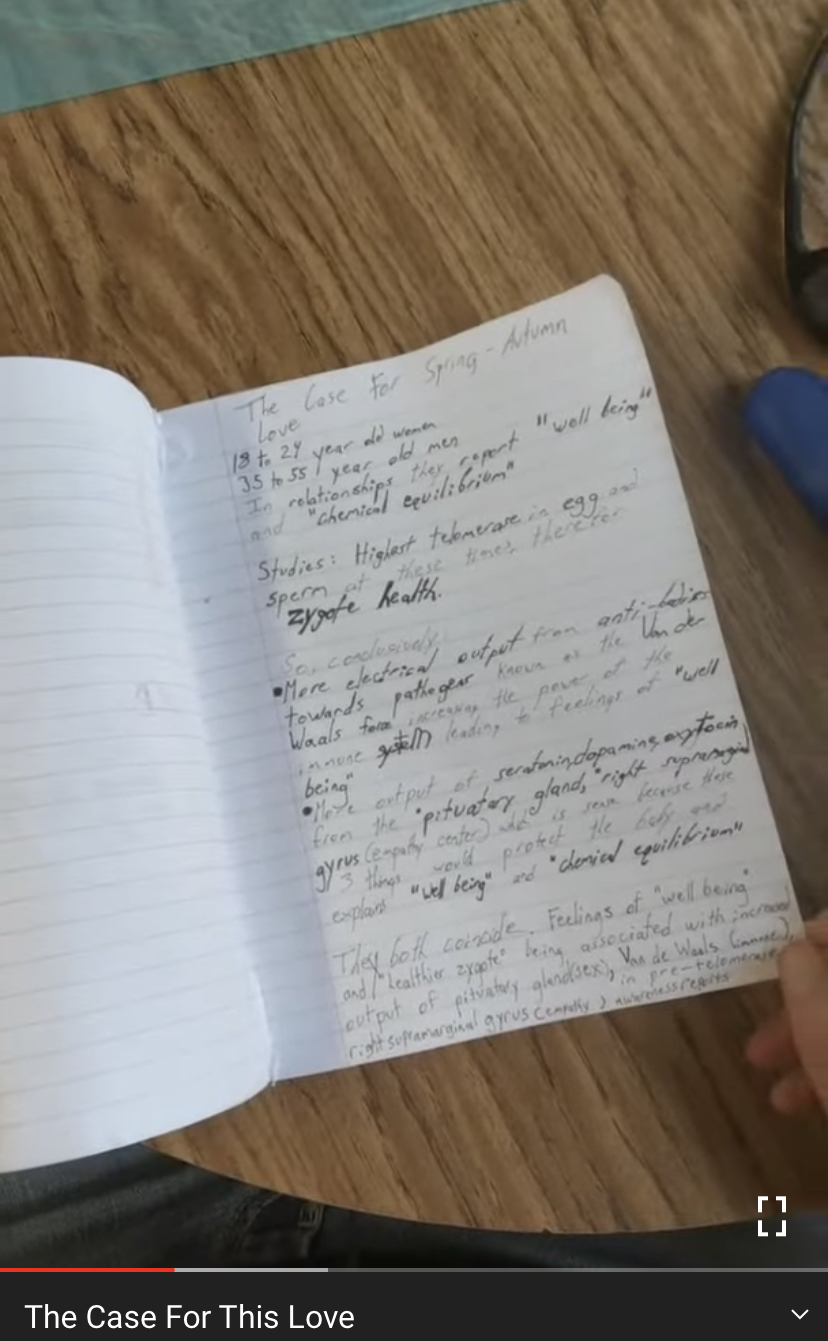 The Case For Spring - Autumn
Love
18 to 24 year old women
35 to 55 year old men
In relationships they report "well being"
and "chemical equilibrium"
Studies: Highest telomerase in egg and
sperm at these times therefor
zygote health.
So, conclusively,
•More electrical output from anti-bodies
towards pathogens known as the Van der
Waals force increasing the power of the
immune system leading to feelings of "well
being"
•More output of seratonin, dopamine, oxytocin
from the "pituatary gland," "right supramarginal
gyrus (empathy center) which is seen because these
3 things would protect the body and
explains "well being" and "chemical equilibrium"
They both coincide. Feelings of "well being"
and "healthier zygote" being associated with increased
output of pituatary gland(sex), Van de Waals (immune),
right supramarginal gyrus (empathy) in pre-telomerase
awareness reports
The Case For This Love